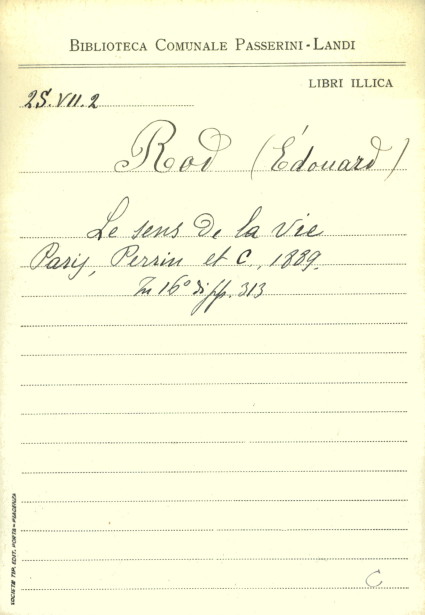 BIBLIOTECA COMUNALE PASSERINI-LANDI
LIBRI ILLICA
2S.VII.2
Rod (Édouard)
Le sens de la vie
Paris, Perrin et C., 1889.
In 16° di pp. 313
SOCIETÀ TIP. EDIT. PORTA - PIACENZA
C